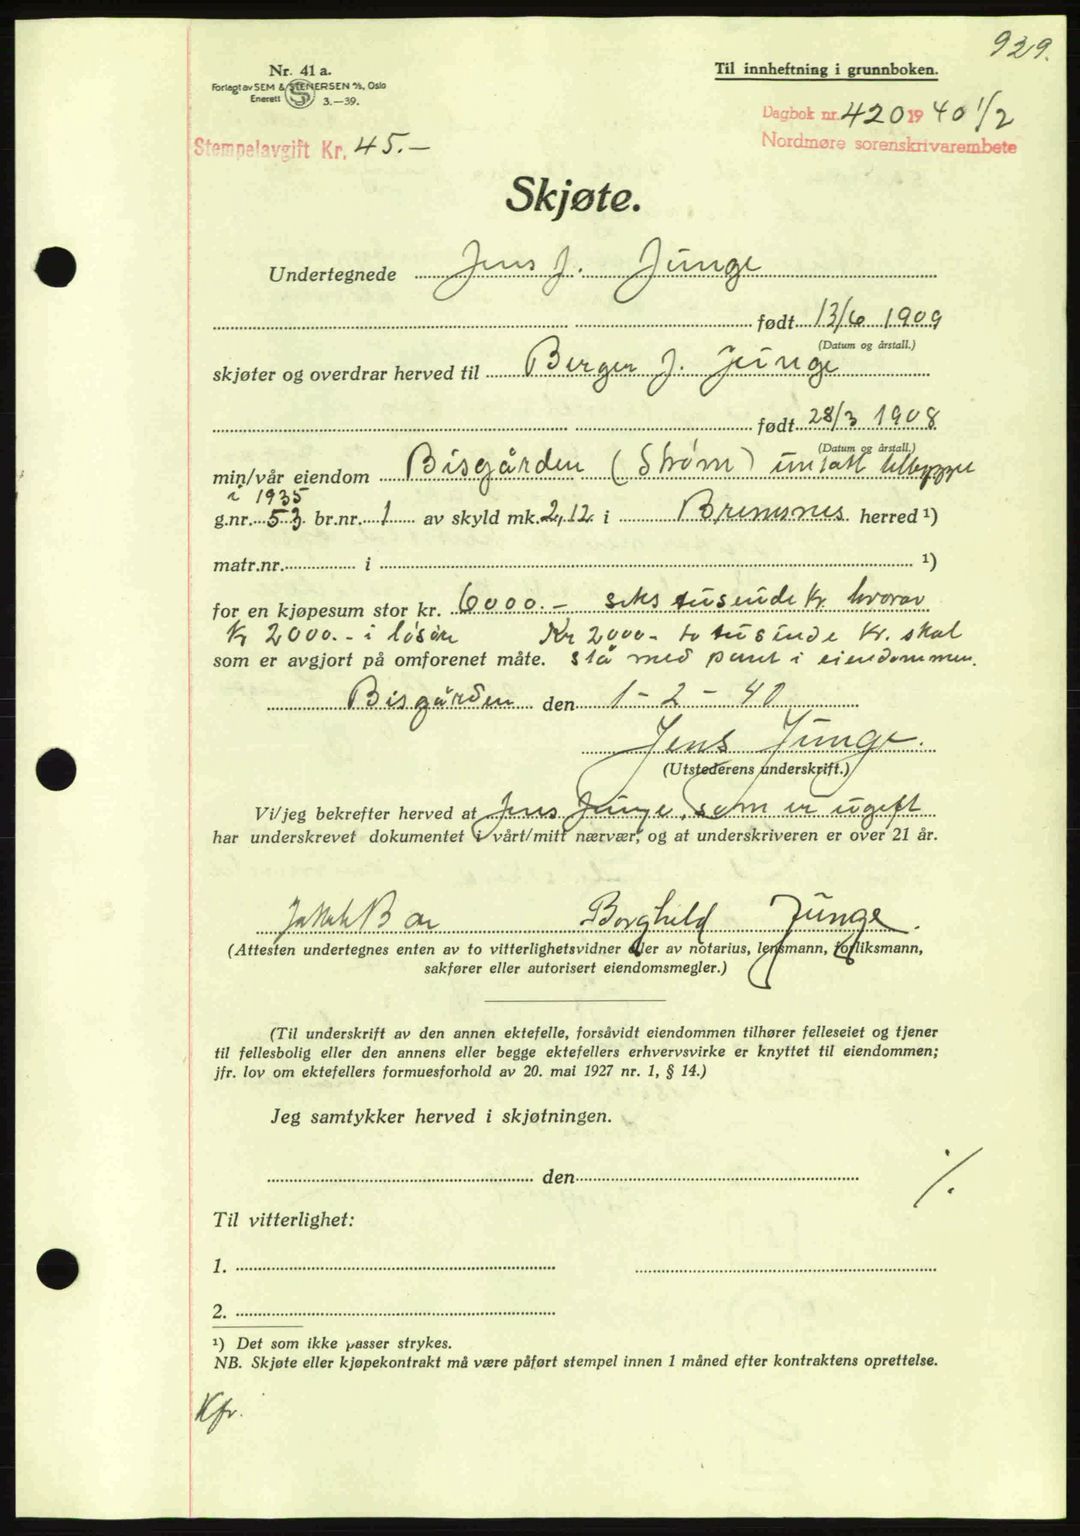 929.
Nr. 41 a.
Til innheftning i grunnboken.
Forlagt av SEM & STENERSEN A/S, Oslo
Enerett S 3.—39.
Dagbok nr. 420 19 40 1/2
Stempelavgift Kr. 45.-
Nordmøre sorenskrivarembete
Skjøte.
Undertegnede Jens J. Junge
født 13/6 1909
(Datum og årstall.)
skjøter og overdrar herved til Berger J. Junge
født 28/3 1908
(Datum og årstall.)
min/vår eiendom Bisgården (Strøm)
i 1935
g.nr. 53 br.nr. 1 av skyld mk. 2,12 i Bremsnes herred ¹)
matr.nr. i ¹)
for en kjøpesum stor kr. 6000.- seks tusende Kr. hvorav
Kr 2000.- i løsøre Kr 2000- to tusinde Kr. skal
som er avgjort på omforenet måte. stå med pant i eiendommen.
Bisgården den 1-2-40
Jens Junge.
(Utstederens underskrift.)
Vi/jeg bekrefter herved at Jens Junge, som er ugift
har underskrevet dokumentet i vårt/mitt nærvær, og at underskriveren er over 21 år.
Borghild Junge.
(Attesten undertegnes enten av to vitterlighetsvidner eller av notarius, lensmann, forliksmann,
sakfører eller autorisert eiendomsmegler.)
(Til underskrift av den annen ektefelle, forsåvidt eiendommen tilhører felleseiet og tjener
til fellesbolig eller den annens eller begge ektefellers erhvervsvirke er knyttet til eiendommen;
jfr. lov om ektefellers formuesforhold av 20. mai 1927 nr. 1, § 14.)
Jeg samtykker herved i skjøtningen.
den
Til vitterlighet:
1.
2.
¹) Det som ikke passer strykes.
NB. Skjøte eller kjøpekontrakt må være påført stempel innen 1 måned efter kontraktens oprettelse.
Kfr.